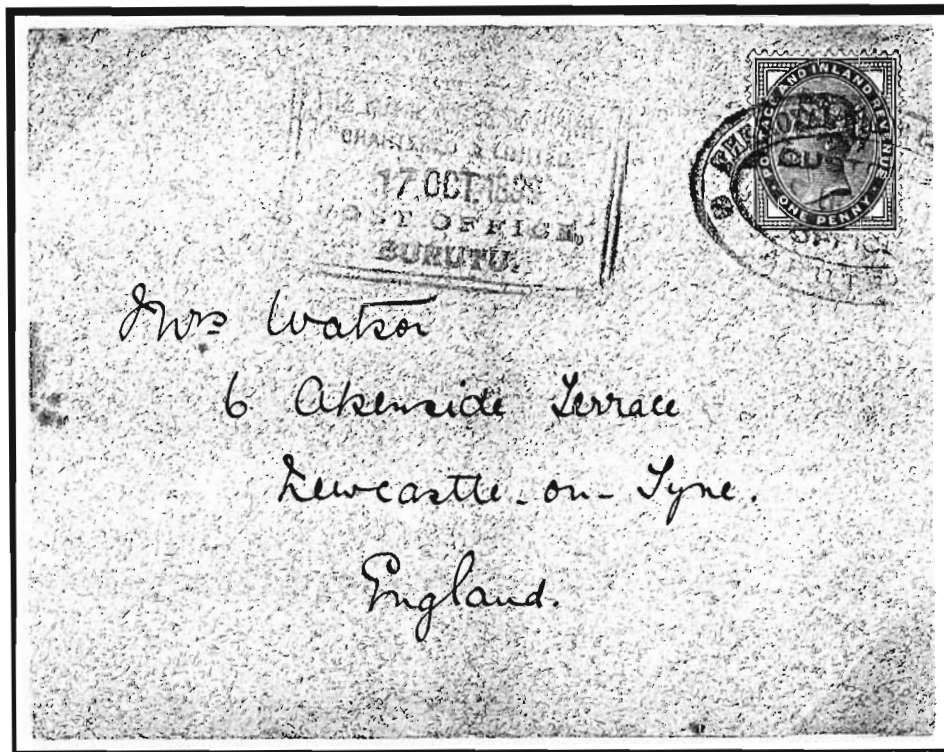 CHARTERED & LIMITED
17 OCT. 189
POST OFFICE,
BURUTU.
POSTAGE AND INLAND REVENUE
ONE PENNY
OFFICE
Mrs Watson
6 Akenside Terrace
Newcastle-on-Tyne.
England.